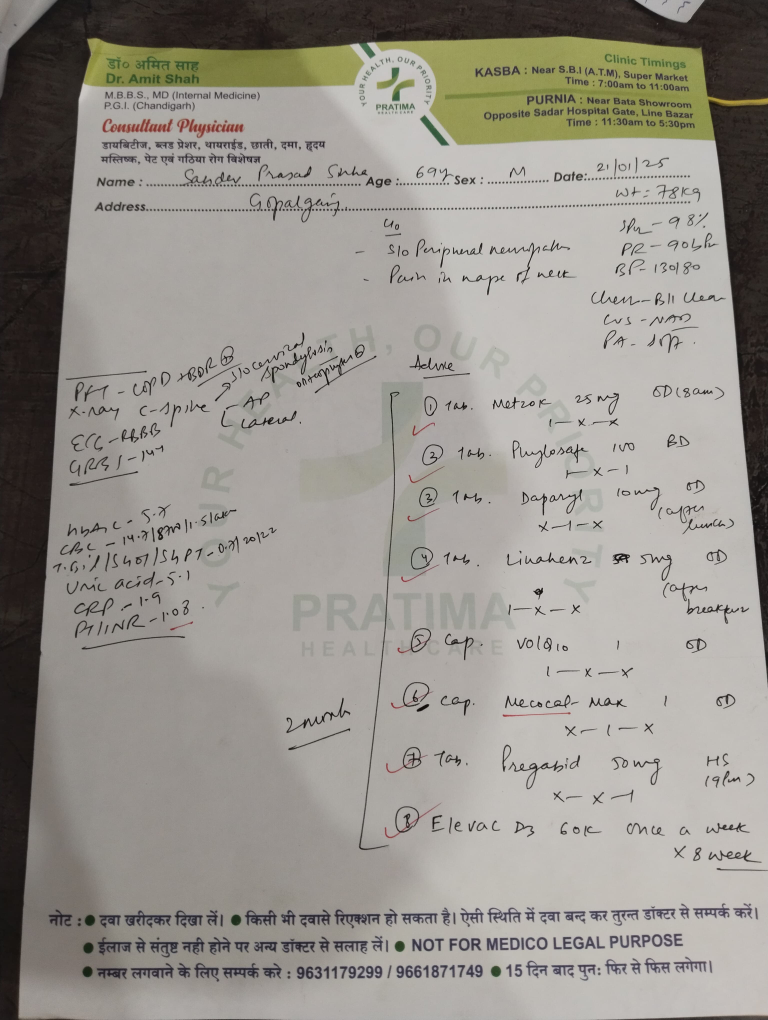 डॉ० अमित साह
Dr. Amit Shah
M.B.B.S., MD (Internal Medicine)
P.G.I. (Chandigarh)
Consultant Physician
डायबिटीज, ब्लड प्रेशर, थायराईड, छाती, दमा, हृदय
मस्तिष्क, पेट एवं गठिया रोग विशेषज्ञ
YOUR HEALTH, OUR PRIORITY
PRATIMA
HEALTH CARE
Clinic Timings
KASBA : Near S.B.I (A.T.M), Super Market
Time : 7:00am to 11:00am
PURNIA : Near Bata Showroom
Opposite Sadar Hospital Gate, Line Bazar
Time : 11:30am to 5:30pm
Name : Prasad Age : 69y Sex : M Date: 21/01/25
Wt: 78kg
Address
C/o
- S/o Peripheral neuropathy
- Pain in nape of neck
SPO2 - 98%
PR - 90bpm
BP - 130/80
Chest - B/L Clear
CVS - NAD
PA - Soft
PFT - COPD + BDR ⊕
X-ray C-Spine → S/o cervical spondylosis
osteophytes ⊕
AP
Lateral.
ECG - RBBB
GRBS - 147
HbA1c - 5.7
CBC - 14.7/8700/1.5/
T.Bil/SGOT/SGPT - 0.7/20/22
Uric acid - 5.1
CRP - 1.9
PT/INR - 1.03
Advise
① Tab. Metzok 25mg OD (8am)
1 - x - x
② Tab. Phylosafe 100 BD
1 - x - 1
③ Tab. Daparyl 10mg OD
x - 1 - x (after lunch)
④ Tab. 5mg OD
1 - x - x (after breakfast)
⑤ Cap. VolQ10 1 OD
1 - x - x
⑥ Cap. Mecocal-Max 1 OD
x - 1 - x
⑦ Tab. Pregabid 50mg HS
x - x - 1 (9pm)
⑧ Elevac D3 60K Once a week
x 8 week
2 month
YOUR HEALTH, OUR PRIORITY
PRATIMA
HEALTH CARE
नोट : ● दवा खरीदकर दिखा लें। ● किसी भी दवासे रिएक्शन हो सकता है। ऐसी स्थिति में दवा बन्द कर तुरन्त डॉक्टर से सम्पर्क करें।
● ईलाज से संतुष्ट नही होने पर अन्य डॉक्टर से सलाह लें। ● NOT FOR MEDICO LEGAL PURPOSE
● नम्बर लगवाने के लिए सम्पर्क करे : 9631179299 / 9661871749 ● 15 दिन बाद पुन: फिर से फिस लगेगा।